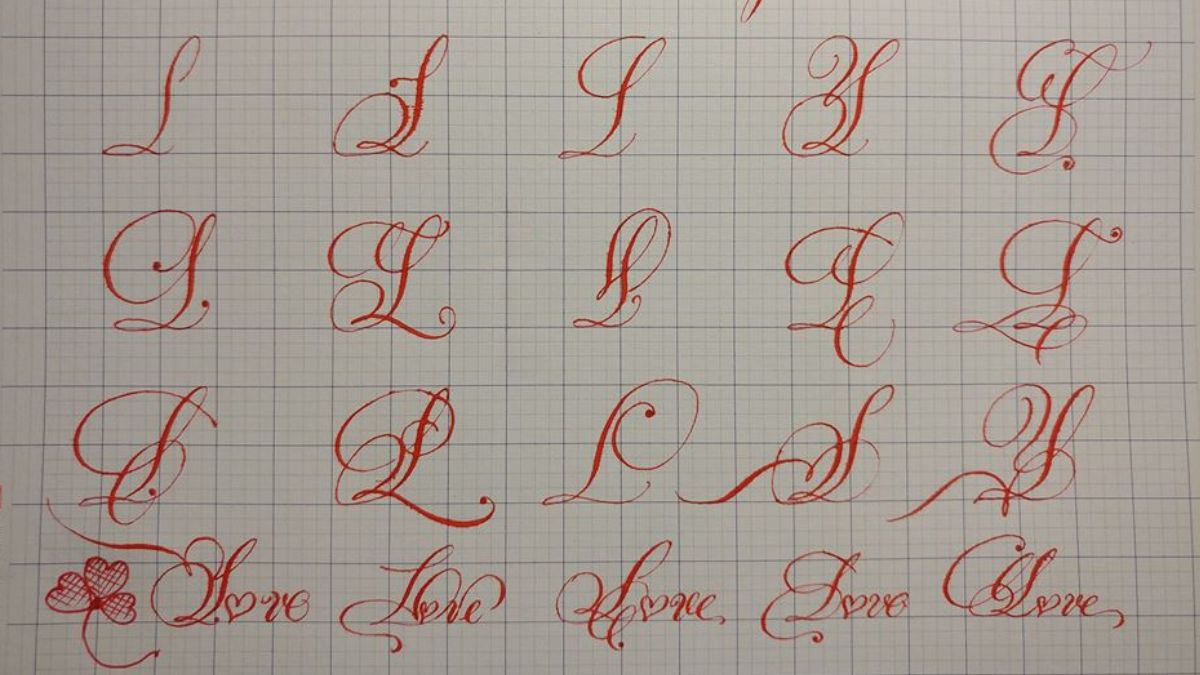 L L L L L
L L L L L
L L L L L
Love Love Love Love Love